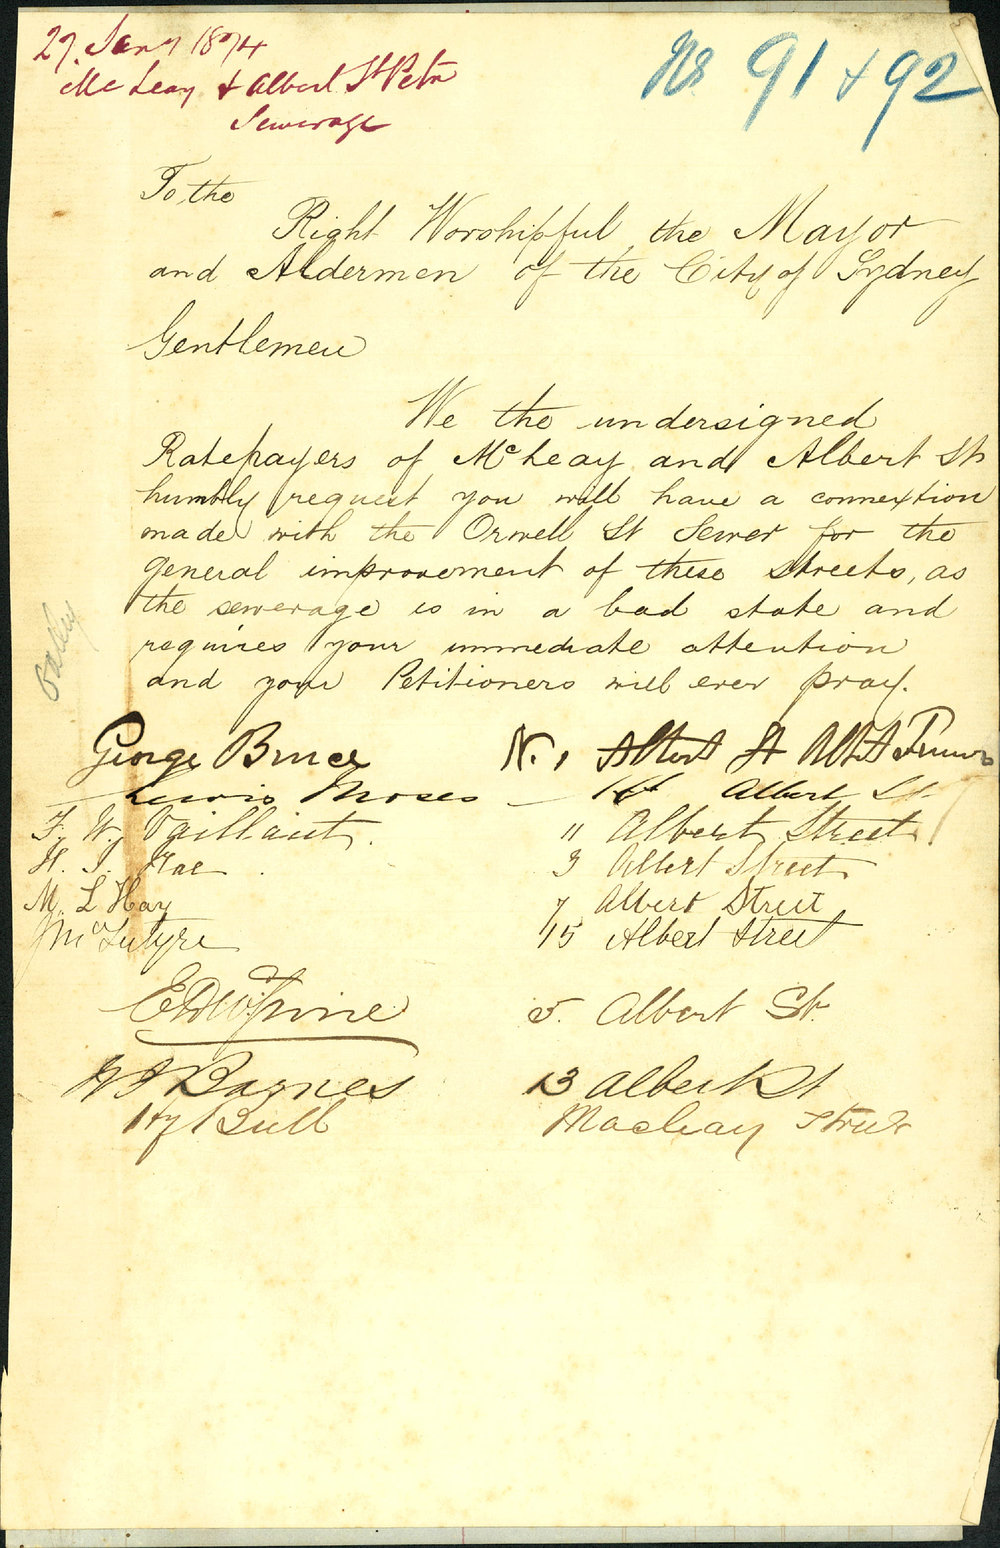 27. Jany 1874
McLeay & Albert St Petn
Sewerage
No 91 & 92
To the
Right Worshipful the Mayor
and Aldermen of the City of Sydney
Gentlemen
We the undersigned
Ratepayers of McLeay and Albert St
humbly request you will have a connextion
made with the Orwell St Sewer for the
general improvement of these streets, as
the sewerage is in a bad state and
requires your immediate attention
and your Petitioners will ever pray.
George Bruce No. 1 Albert St
Lewis Moses Albert St
F. W. Vaillant. 11 Albert Street
H. I. 3 Albert Street
M. L Hay 7 Albert Street
McIntyre 15 Albert Street
5. Albert St.
Barnes 13 Albert St
Hy Bull Macleay Street